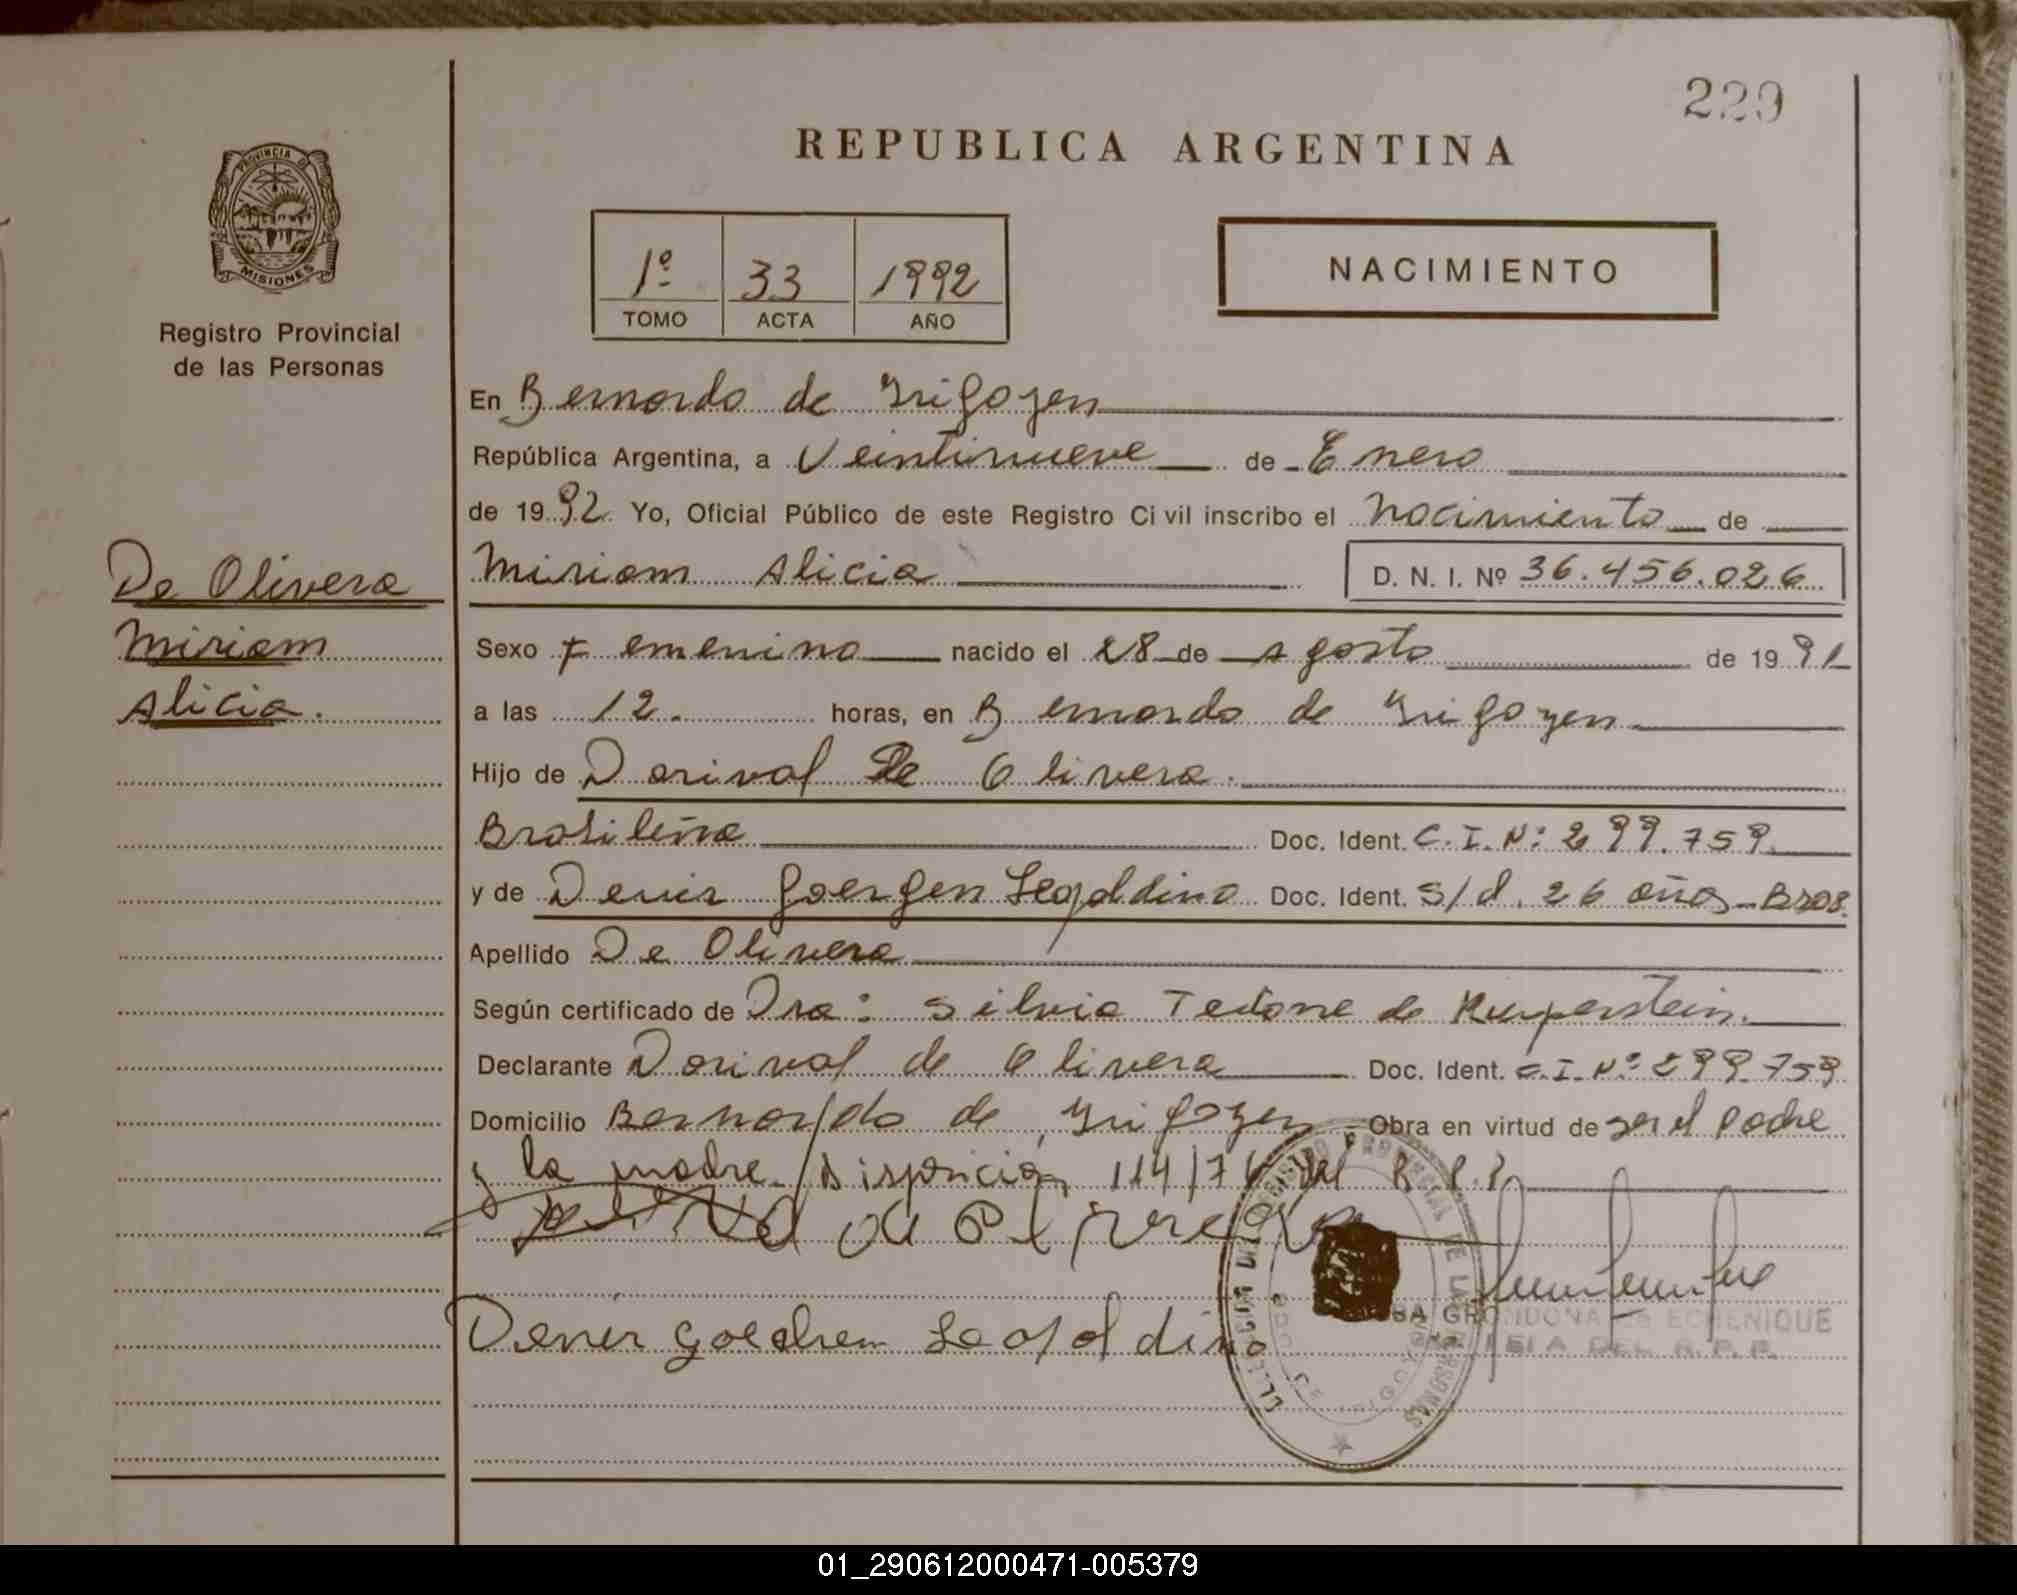 229
REPUBLICA ARGENTINA
PROVINCIA DE
MISIONES
Registro Provincial
de las Personas
1º 33 1992
TOMO ACTA AÑO
NACIMIENTO
En Bernardo de Yrigoyen
República Argentina, a Veintinueve de Enero
de 1992 Yo, Oficial Público de este Registro Civil inscribo el Nacimiento de
Miriam Alicia D. N. I. Nº 36.456.026
De Olivera
Miriam
Alicia.
Sexo Femenino nacido el 28 de Agosto de 1991
a las 12. horas, en Bernardo de Yrigoyen
Hijo de Dorival De Olivera.
Brasileña Doc. Ident. C.I.Nº 299.759.
y de Denir Goergen Leopoldino Doc. Ident. S/d. 26 años - Bras.
Apellido De Olivera
Según certificado de Dra: Silvia Tedone de Kuperstein.
Declarante Dorival de Olivera Doc. Ident. C.I.Nº 299.759
Domicilio Bernardo de Yrigoyen Obra en virtud de ser el Padre
y la madre. Disposición 114/7 del R.P.P.
de Olivera
Denir Goedren Leopoldino
GRONDONA de ECHENIQUE
DEL R. P. P.
REGISTRO PROVINCIAL DE LAS PERSONAS
01_290612000471-005379